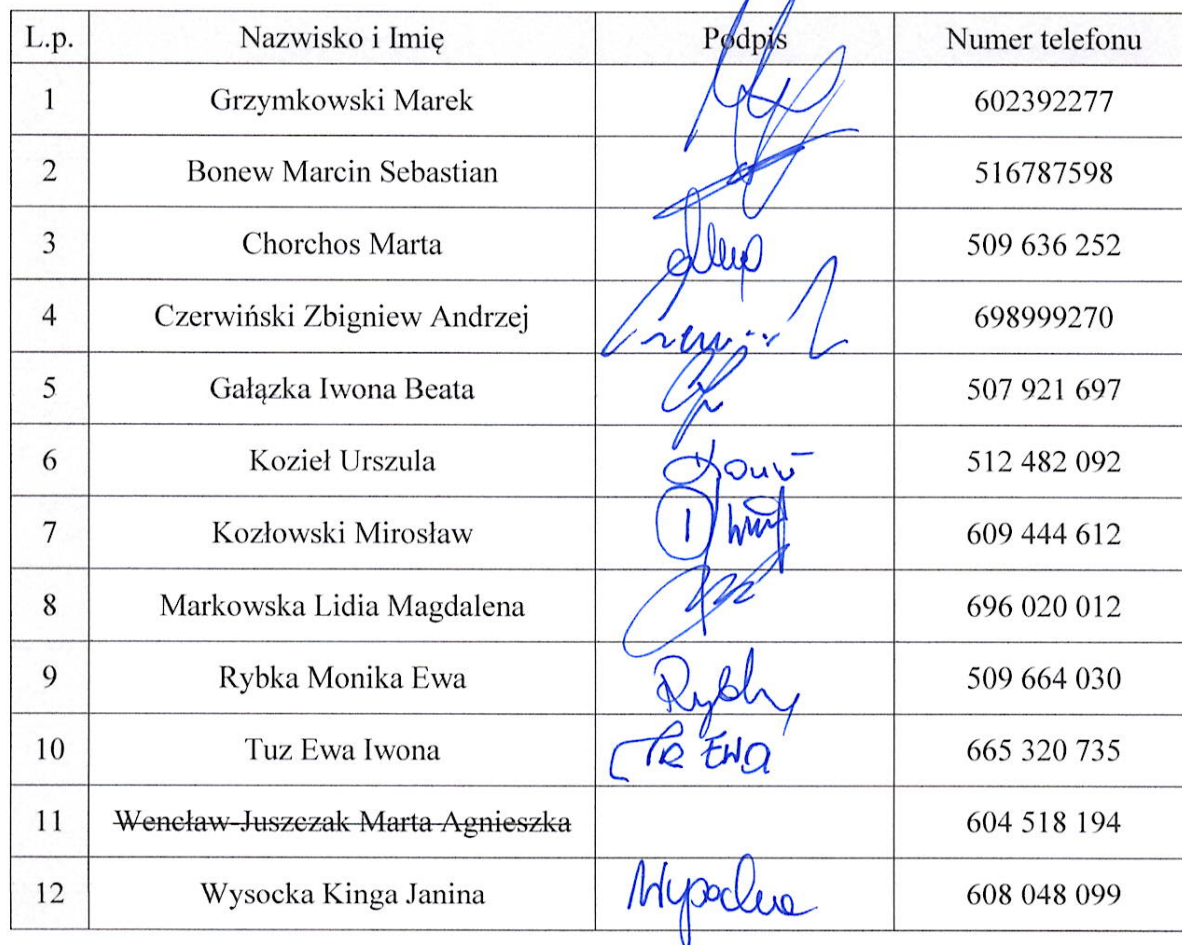 L.p. Nazwisko i Imię Podpis Numer telefonu
1 Grzymkowski Marek 602392277
2 Bonew Marcin Sebastian 516787598
3 Chorchos Marta 509 636 252
4 Czerwiński Zbigniew Andrzej 698999270
5 Gałązka Iwona Beata 507 921 697
6 Kozieł Urszula 512 482 092
7 Kozłowski Mirosław 609 444 612
8 Markowska Lidia Magdalena 696 020 012
9 Rybka Monika Ewa 509 664 030
10 Tuz Ewa Iwona EWA 665 320 735
11 Wencław-Juszczak Marta Agnieszka 604 518 194
12 Wysocka Kinga Janina 608 048 099